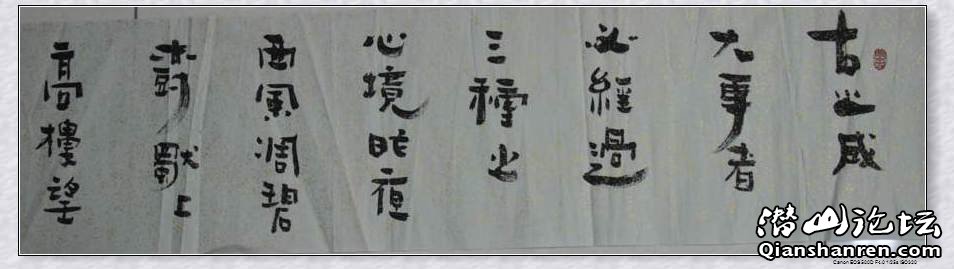 古之成
大事者
必經過
三種之
心境昨夜
西風凋碧
樹獨上
高樓望
潜山论坛
Qianshanren.com